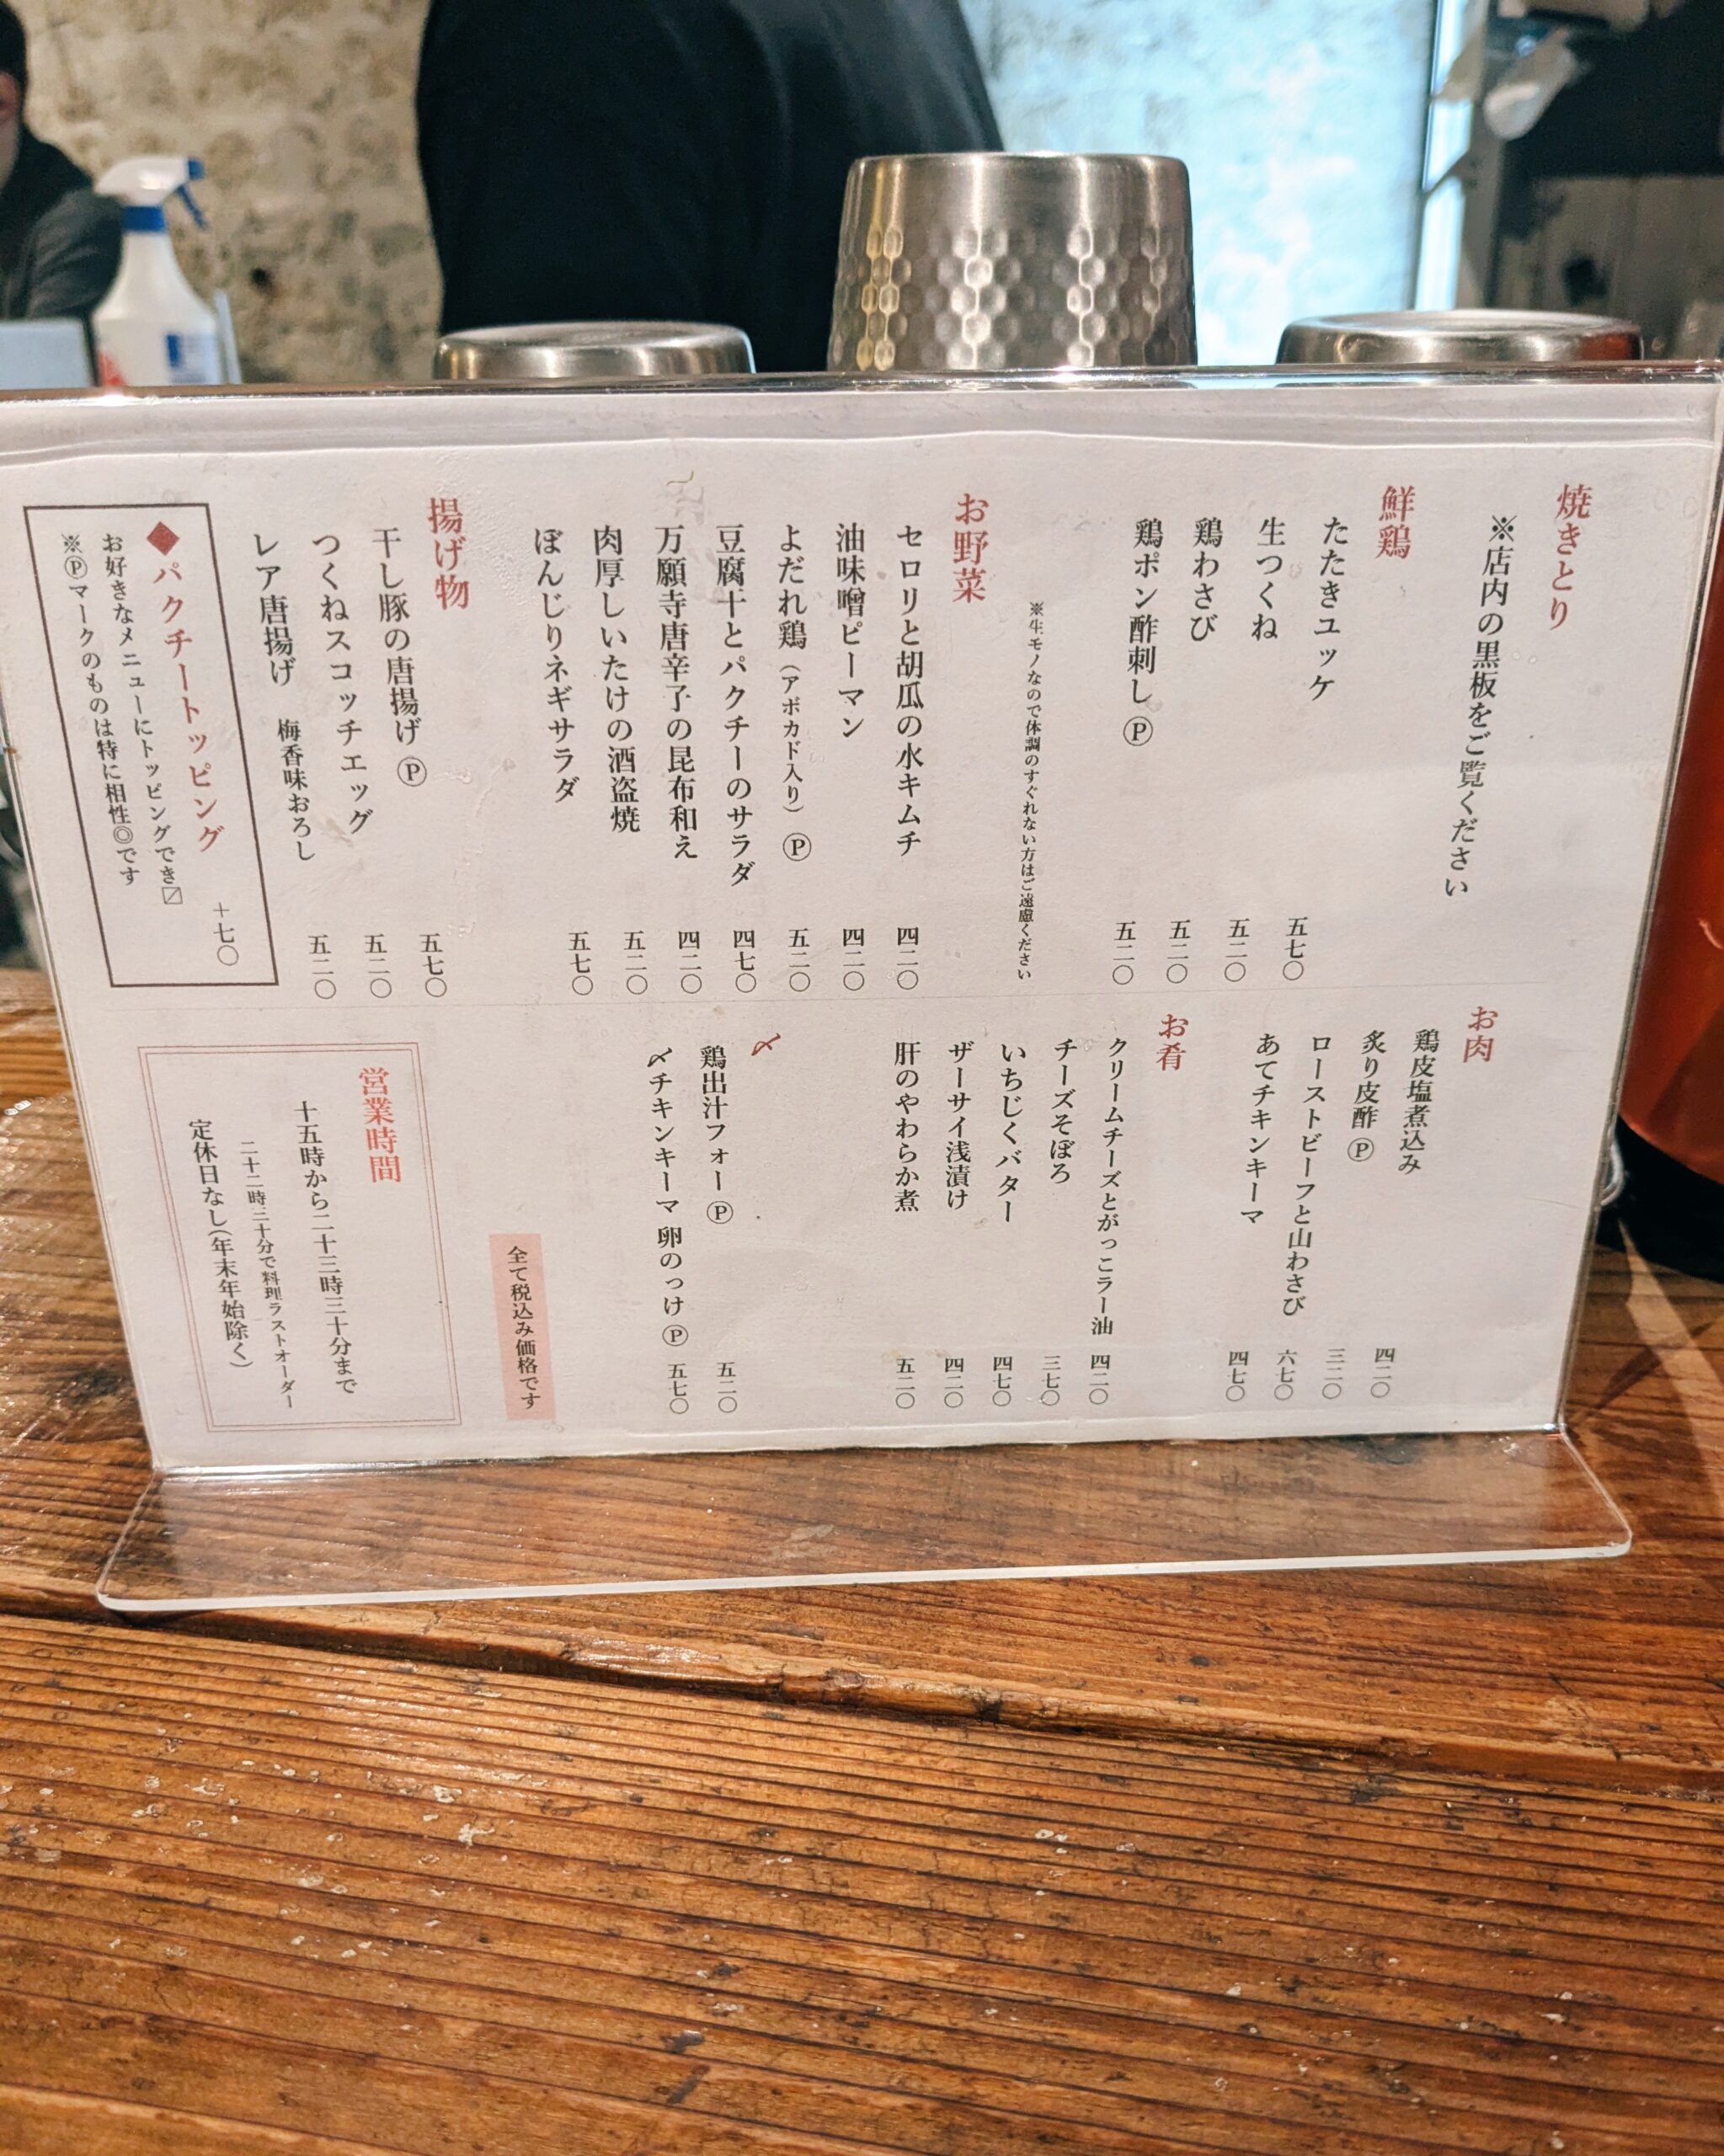 焼きとり
※店内の黒板をご覧ください
鮮鶏
たたきユッケ 五七〇
生つくね 五二〇
鶏わさび 五二〇
鶏ポン酢刺し Ⓟ 五二〇
※生モノなので体調のすぐれない方はご遠慮ください
お野菜
セロリと胡瓜の水キムチ 四二〇
油味噌ピーマン 四二〇
よだれ鶏（アボカド入り） Ⓟ 五二〇
豆腐干とパクチーのサラダ 四七〇
万願寺唐辛子の昆布和え 四二〇
肉厚しいたけの酒盗焼 五二〇
ぼんじりネギサラダ 五七〇
揚げ物
干し豚の唐揚げ Ⓟ 五七〇
つくねスコッチエッグ 五二〇
レア唐揚げ 梅香味おろし 五二〇
◆パクチートッピング +七〇
お好きなメニューにトッピングでき〼
※Ⓟマークのものは特に相性◎です
お肉
鶏皮塩煮込み 四二〇
炙り皮酢 Ⓟ 三二〇
ローストビーフと山わさび 六七〇
あてチキンキーマ 四七〇
お肴
クリームチーズとがっこラー油 四二〇
チーズそぼろ 三七〇
いちじくバター 四七〇
ザーサイ浅漬け 四二〇
肝のやわらか煮 五二〇
〆
鶏出汁フォー Ⓟ 五二〇
〆チキンキーマ 卵のっけ Ⓟ 五七〇
全て税込み価格です
営業時間
十五時から二十三時三十分まで
二十二時三十分で料理ラストオーダー
定休日なし（年末年始除く）